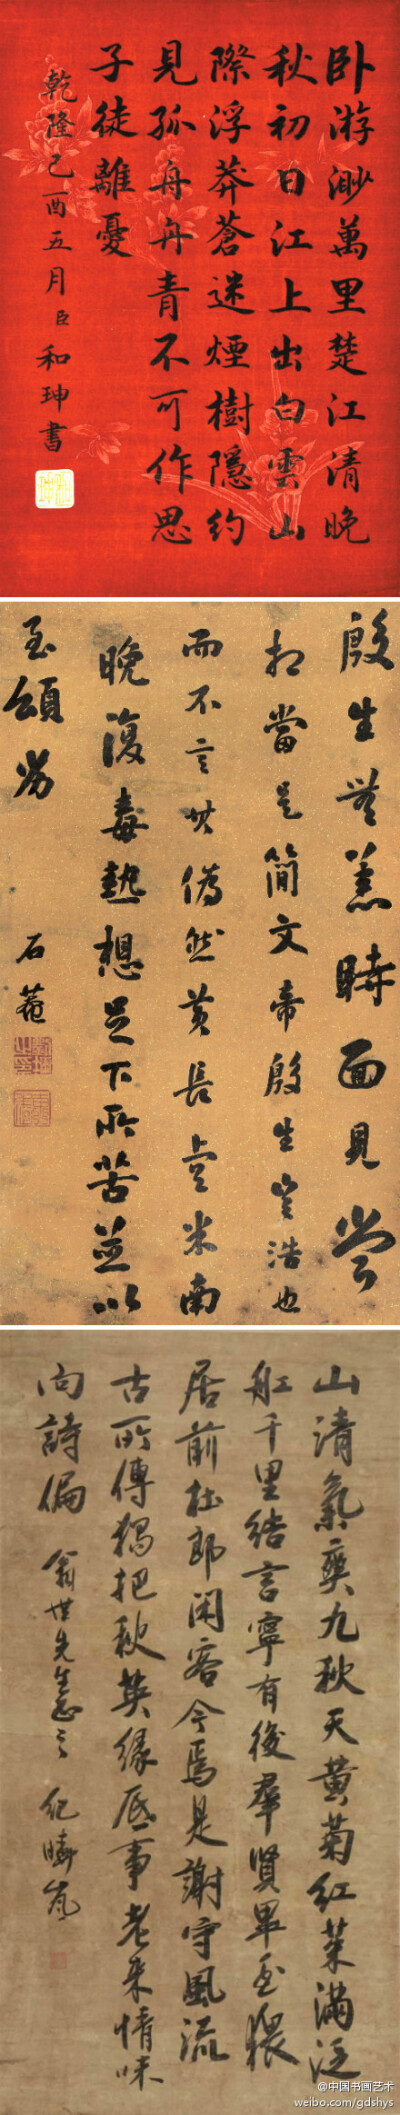 卧游渺萬里楚江清晚
秋初日江上出白雲山
際浮莽蒼迷煙樹隱約
見孤舟丹青不可作思
子徒離憂
乾隆己酉五月臣和珅書
殷生無恙時面見嘗
相當是簡文帝殷生豈浩也
而不言其偽然黃長睿米南
晚復毒熱想足下所苦並以
石菴
山清氣爽九秋天黃菊紅茱滿泛
舡千里結言寧有後羣賢畢至猥
居前杜郎閑客今焉是謝守風流
古所傳獨把秋英緣底事老來情味
向詩偏
紀曉嵐
@中国书画艺术
weibo.com/gdshys